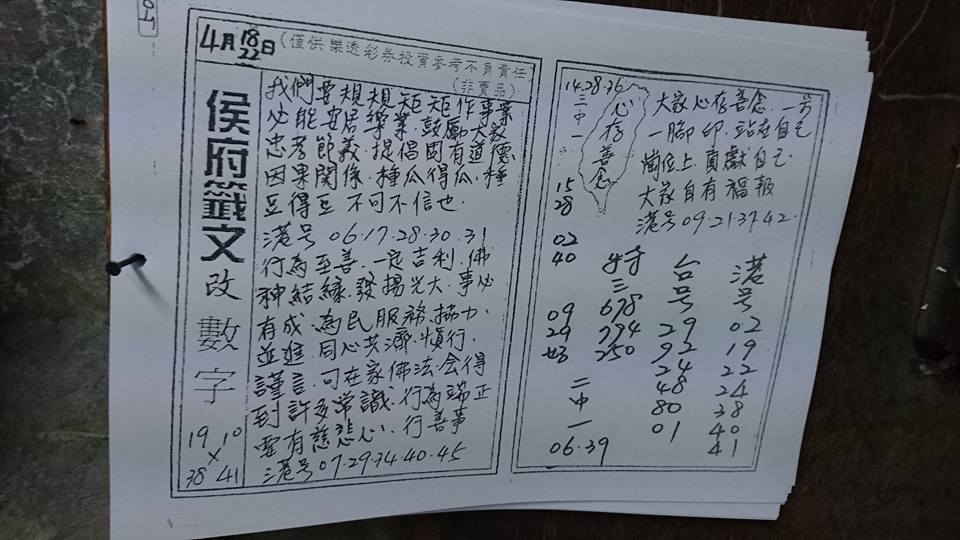 4月18日
22
(僅供樂透彩券投資參考不負責任)
(非賣品)
侯府籤文改數字
19 10
×
38 41
我們要規規矩矩作事業
必能安居樂業.鼓勵大眾
忠孝節義.提倡固有道德.
因果關係.種瓜得瓜.種
豆得豆 不可不信也.
港号 06.17.28.30.31
行為至善.一定吉利.佛
神結緣.發揚光大.事必
有成.為民服務.協力.
並進.同心共濟.慎行.
謹言.可在家佛法.会得
到許多常識.行為端正
要有慈悲心.行善事
港号 07.29.34.40.45
14.28.36
三中一
心存善念
大家心存善念.一步
一腳印.站在自己
崗位上.貢獻自己.
大家自有福報
港号 09.21.37.42.
15
28
02
40
09
29
二中一
06.39
特三
678
794
250
台号
29
92
24
48
80
01
港号
02
19
22
24
38
40
41